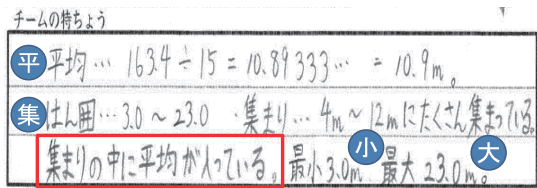 チームの特ちょう
平 平均… 163.4÷15=10.89333… =10.9m。
集 はん囲…3.0～23.0 ・集まり… 4m～12mにたくさん集まっている。
集まりの中に平均が入っている。 最小3.0m 小 最大23.0m。 大